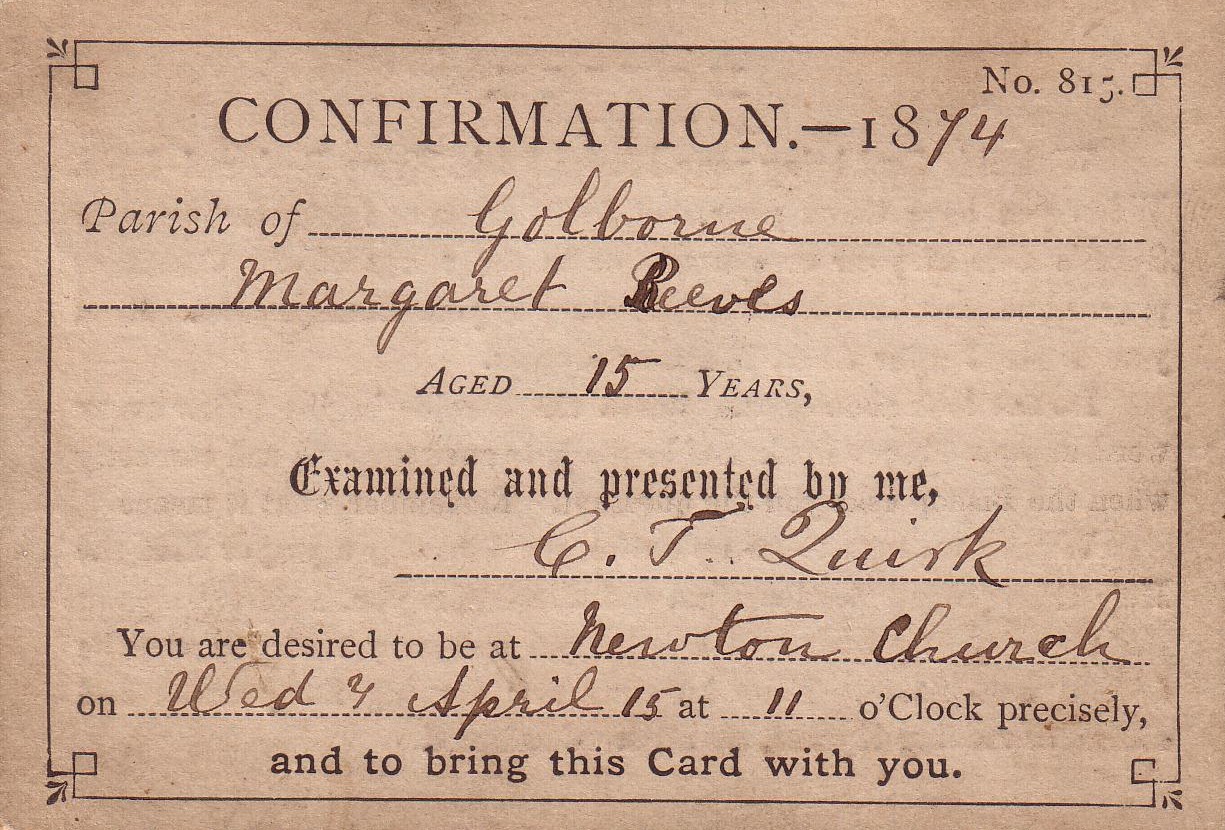 No. 815.
CONFIRMATION.—1874
Parish of Golborne
Margaret Reeves
AGED 15 YEARS,
Examined and presented by me,
C. T. Quirk
You are desired to be at Newton Church
on Wed April 15 at 11 o'Clock precisely,
and to bring this Card with you.